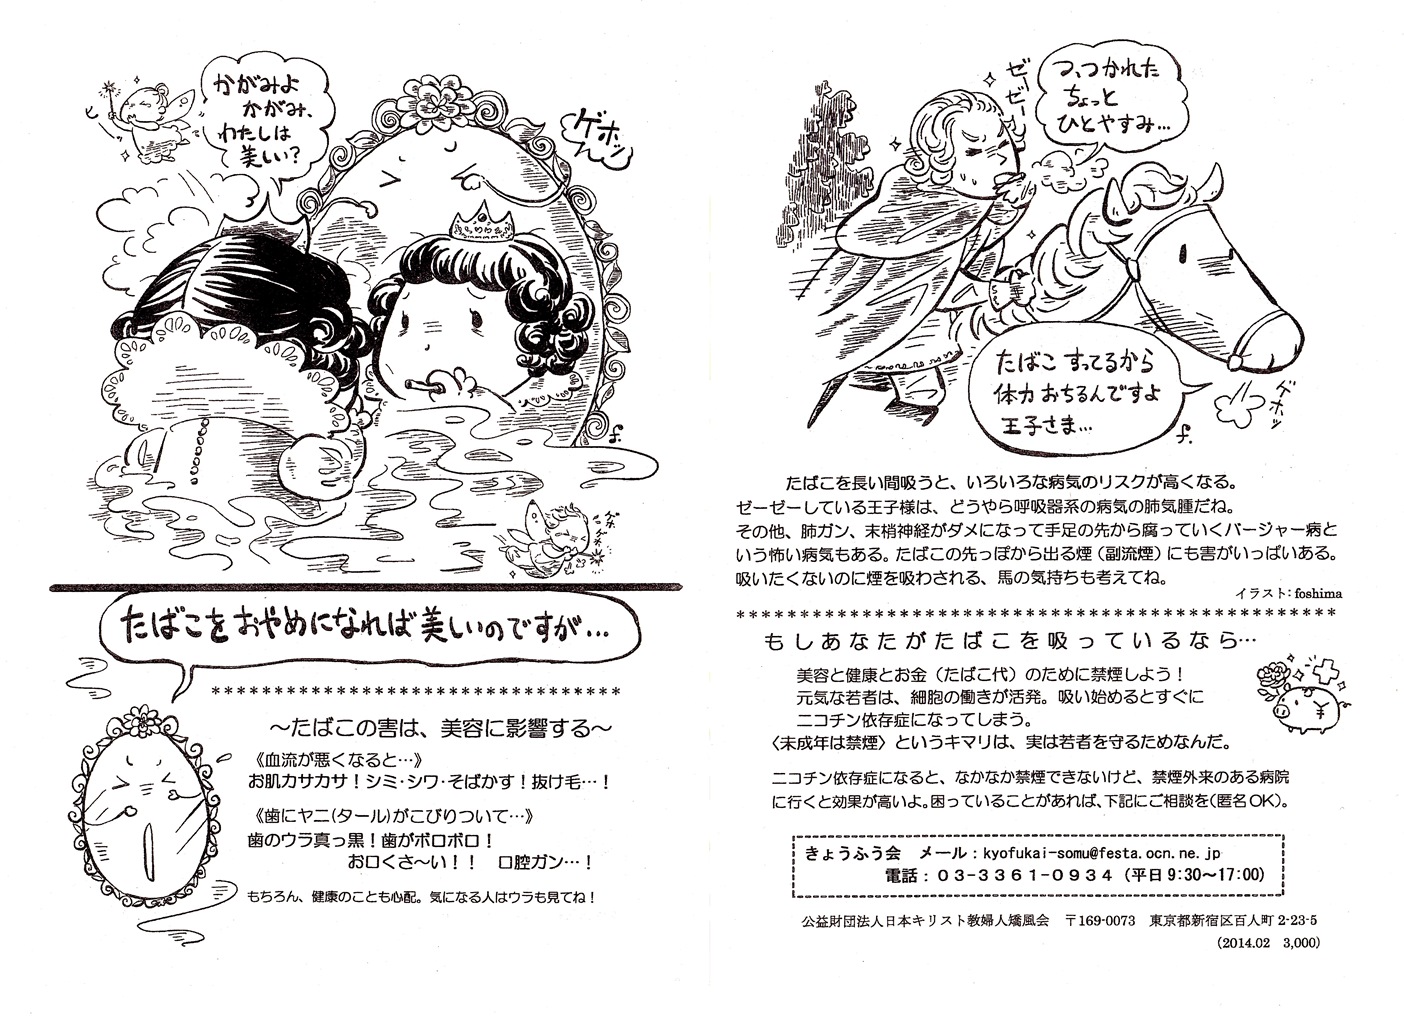 かがみよ
かがみ、
わたしは
美しい?
ゲホッ
ゲホ
ゲホ
f.
たばこをおやめになれば美しいのですが…
*********************************
～たばこの害は、美容に影響する～
《血流が悪くなると…》
お肌カサカサ！シミ・シワ・そばかす！抜け毛…！
《歯にヤニ(タール)がこびりついて…》
歯のウラ真っ黒！歯がボロボロ！
お口くさ～い！！　口腔ガン…！
もちろん、健康のことも心配。気になる人はウラも見てね！
ゼーゼー
つ、つかれた
ちょっと
ひとやすみ…
たばこ すってるから
体力 おちるんですよ
王子さま…
ゲホッ
f.
たばこを長い間吸うと、いろいろな病気のリスクが高くなる。
ゼーゼーしている王子様は、どうやら呼吸器系の病気の肺気腫だね。
その他、肺ガン、末梢神経がダメになって手足の先から腐っていくバージャー病と
いう怖い病気もある。たばこの先っぽから出る煙（副流煙）にも害がいっぱいある。
吸いたくないのに煙を吸わされる、馬の気持ちも考えてね。
イラスト：foshima
************************************************
もしあなたがたばこを吸っているなら…
美容と健康とお金（たばこ代）のために禁煙しよう！
元気な若者は、細胞の働きが活発。吸い始めるとすぐに
ニコチン依存症になってしまう。
〈未成年は禁煙〉というキマリは、実は若者を守るためなんだ。
¥
ニコチン依存症になると、なかなか禁煙できないけど、禁煙外来のある病院
に行くと効果が高いよ。困っていることがあれば、下記にご相談を(匿名OK)。
きょうふう会　メール：kyofukai-somu@festa.ocn.ne.jp
電話：０３-３３６１-０９３４（平日 9:30～17:00）
公益財団法人日本キリスト教婦人矯風会　〒169-0073　東京都新宿区百人町 2-23-5
（2014.02　3,000）